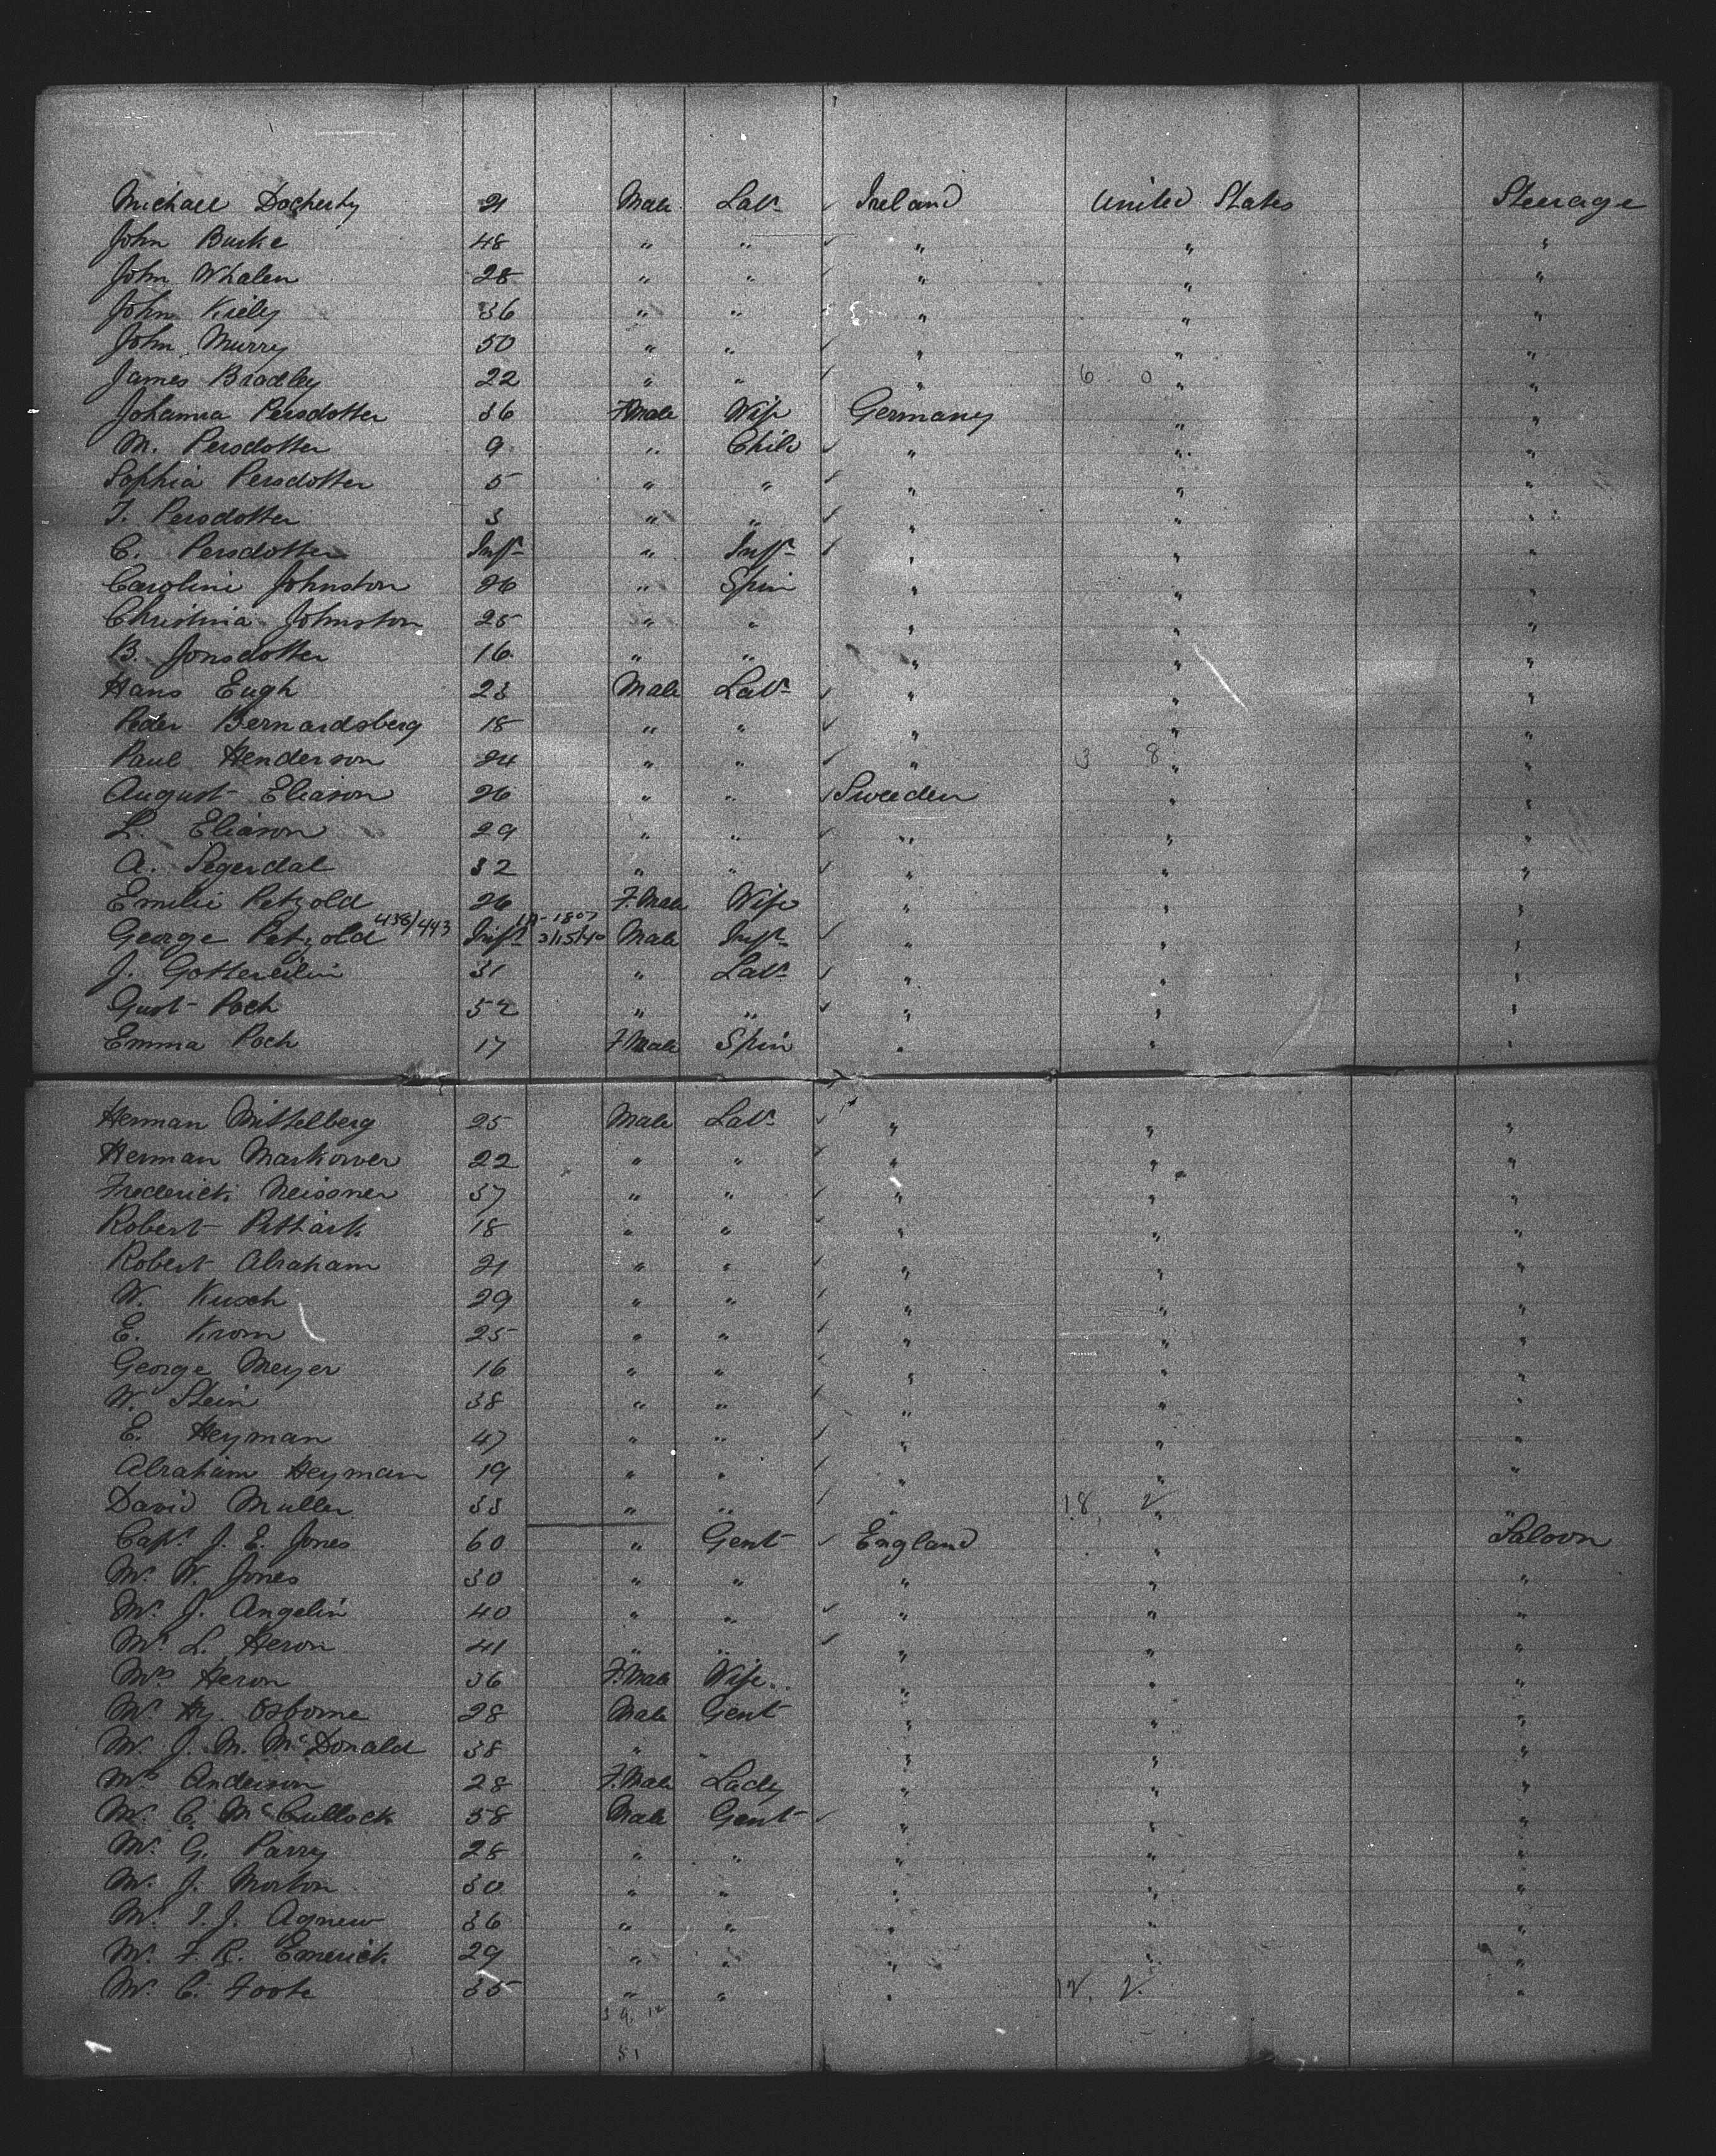 Michael Docherty 21 Male Labr Ireland United States Steerage
John Burke 48 " " " " "
John Whalen 28 " " " " "
John Kiely 36 " " " " "
John Murry 50 " " " " "
James Bradley 22 " " " 6 0 " "
Johanna Persdotter 36 F.Male Wife Germany " "
M. Persdotter 9 " Child " " "
Sophia Persdotter 5 " " " " "
T. Persdotter 3 " " " " "
C. Persdotter Inft " Inft " " "
Caroline Johnston 26 " Spin " " "
Christina Johnston 25 " " " " "
B. Jonsdotter 16 " " " " "
Hans Eugh 23 Male Labr " " "
Peder Bernardsberg 18 " " " " "
Paul Henderson 24 " " " 3 8 " "
August Eliason 26 " " Sweeden " "
L. Eliason 29 " " " " "
A. Segerdal 32 " " " " "
Emilie Petzold 26 F.Male Wife " " "
George Petzold 438/443 Inft 2/15/40 Male Inft " " "
J. 31 " Labr " " "
Gust Poch 52 " " " " "
Emma Poch 17 F.Male Spin " " "
Herman Mittelberg 25 Male Labr " " "
Herman Markower 22 " " " " "
Frederick Meissner 37 " " " " "
Robert 18 " " " " "
Robert Abraham 21 " " " " "
W. Kusch 29 " " " " "
E. Krom 25 " " " " "
George Meyer 16 " " " " "
W. Stein 38 " " " " "
E. Heyman 47 " " " " "
Abraham Heyman 19 " " " " "
David Muller 33 " " " 18 2 " "
Capt. J. E. Jones 60 " Gent England " Saloon
Mr W. Jones 30 " " " " "
Mr J. Angelin 40 " " " " "
Mr L. Heron 41 " " " " "
Mrs Heron 36 F.Male Wife " " "
Mr Hy. Osborne 28 Male Gent " " "
Mr J. M. McDonald 38 " " " " "
Mrs Anderson 28 F.Male Lady " " "
Mr C. McCullock 58 Male Gent " " "
Mr G. Parry 28 " " " " "
Mr J. Morton 30 " " " " "
Mr T. J. Agnew 36 " " " " "
Mr F. R. Emerick 29 " " " " "
Mr C. Foote 35 " " " 12 2 "
39 12
51